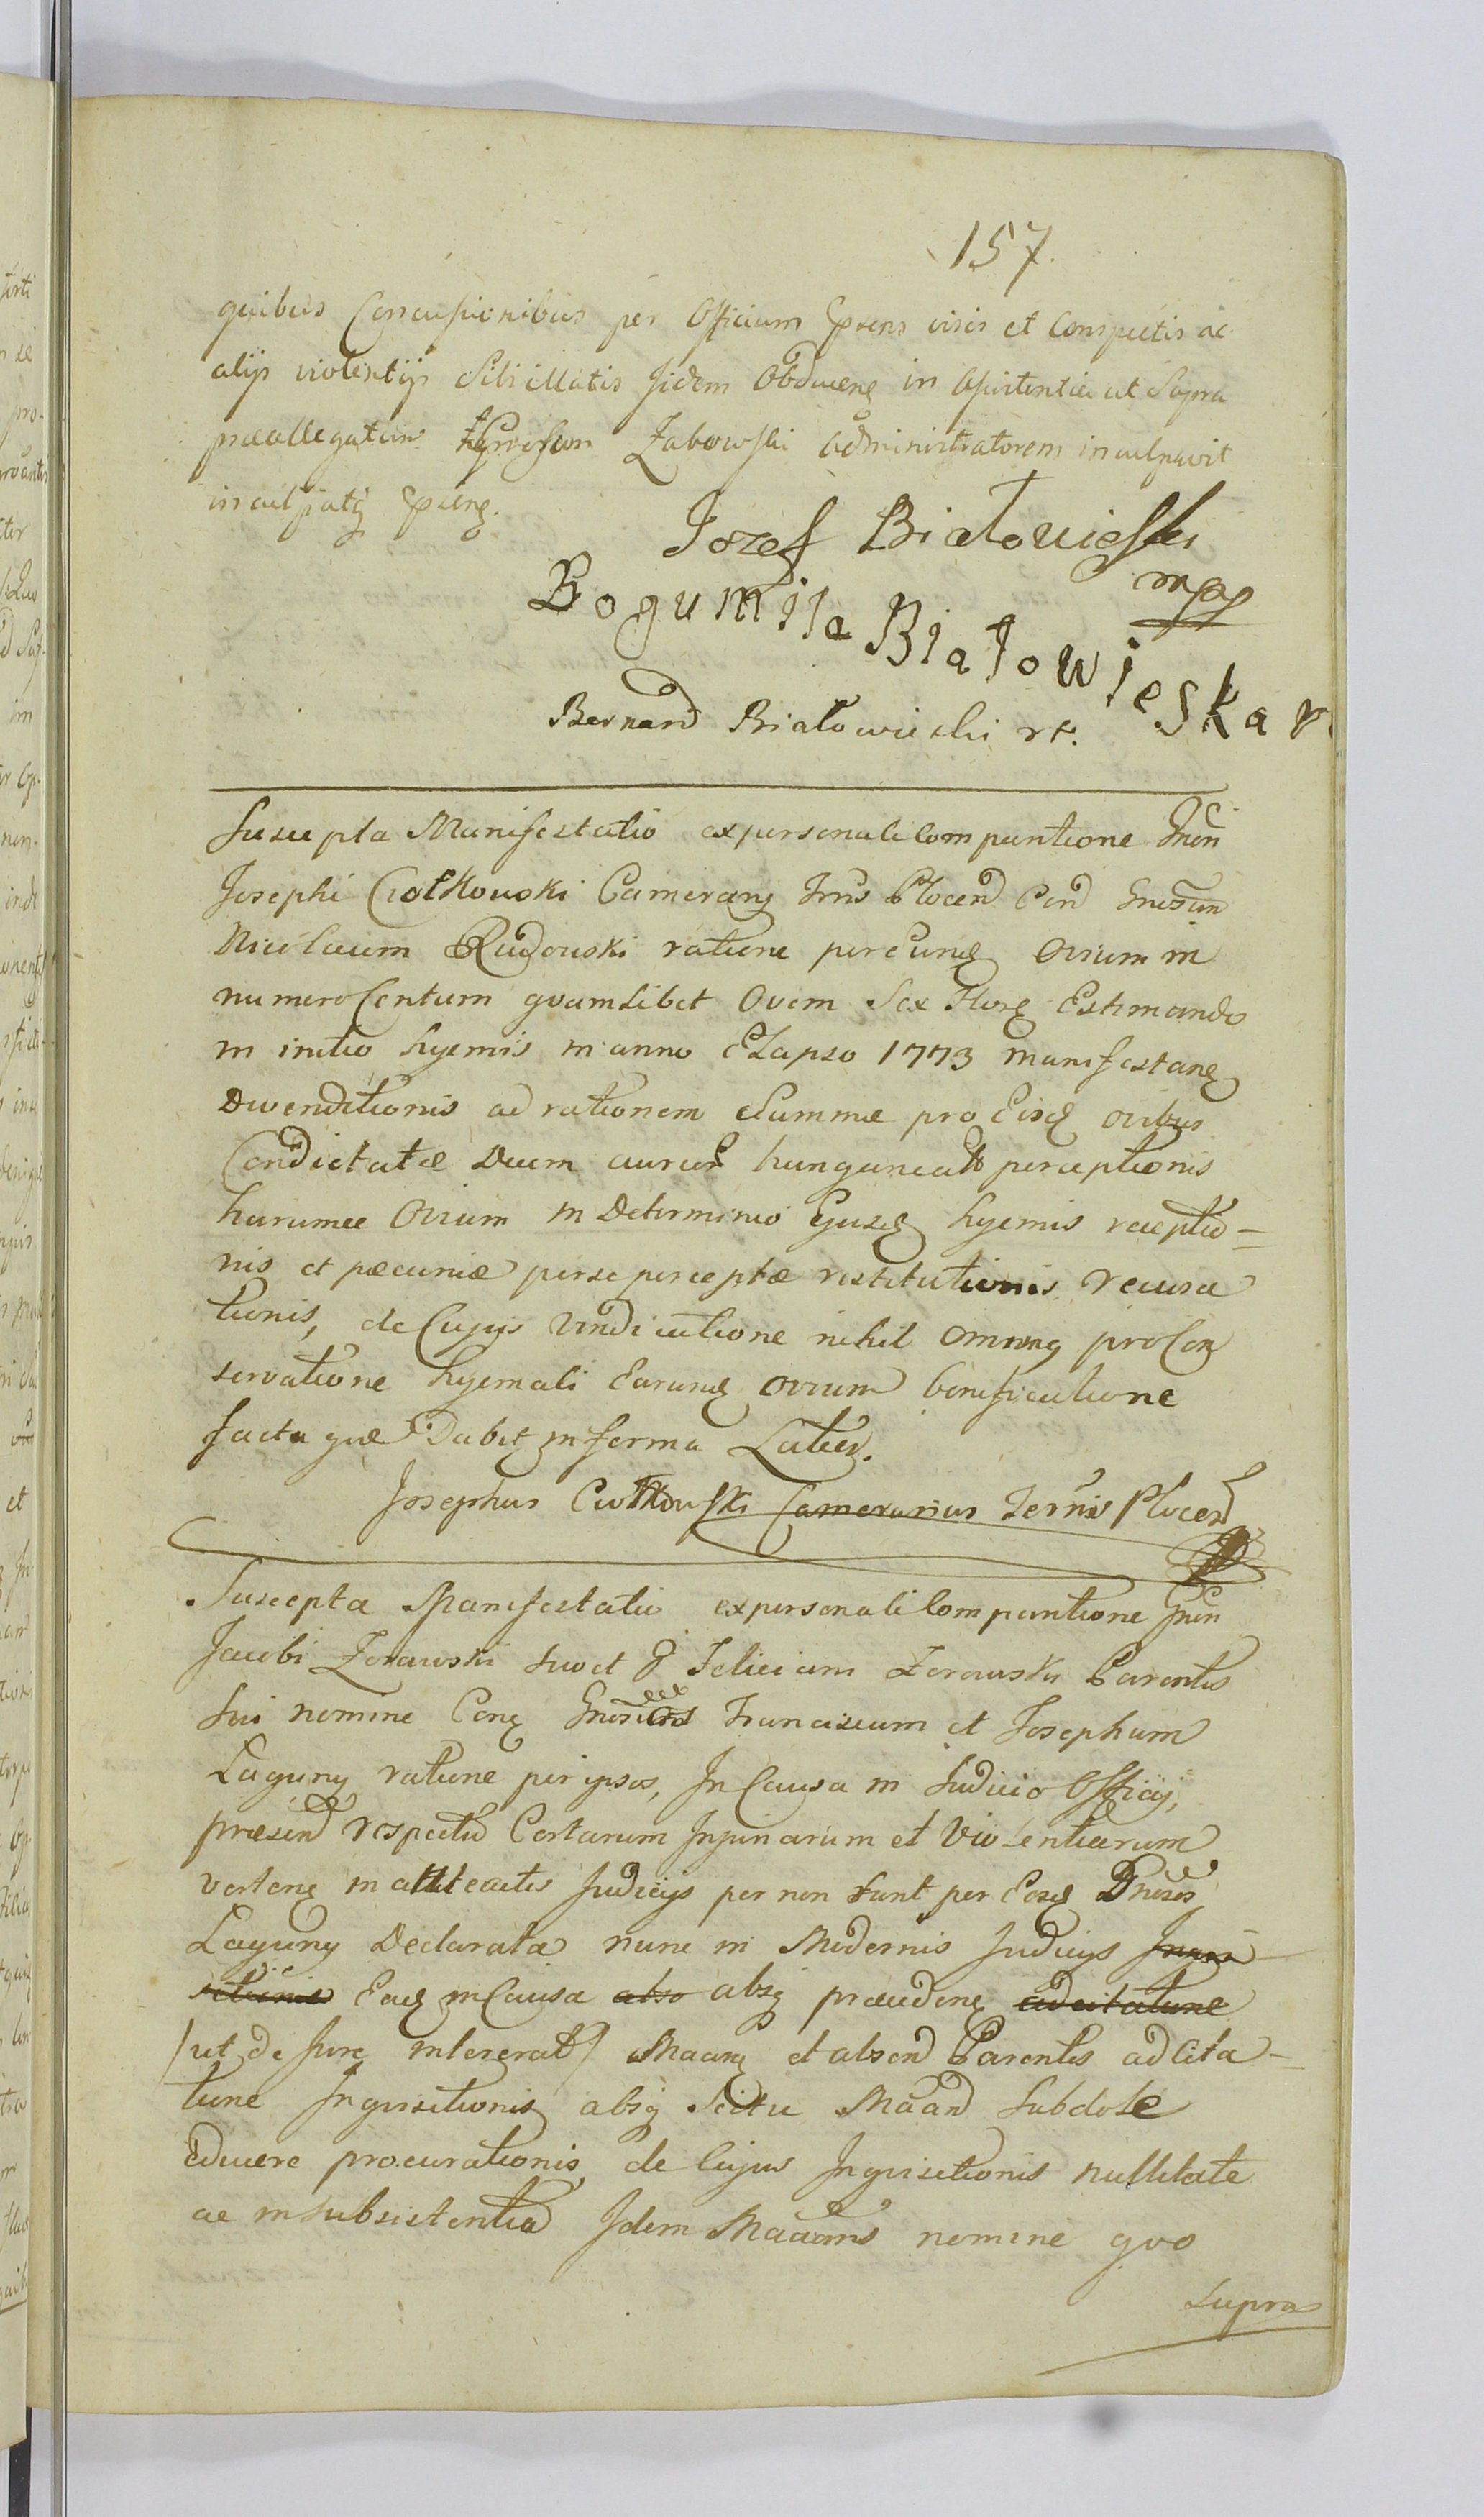 157.
quibus Concussionibus per Officium Prens visis et Conspectis ac
alijs violentijs Sibi illatis Jidem Obducen in Assistentia ut Supra
præallegatum Grosum Zabowski administratorem inculpavit
inculpatq
Jozef Białowieski
mpp
Bogumiła Białowieska
Bernard Białowieski
Suscepta Manifestatio ex personali Comparitione Gnen
Josephi Ciołkowski Camerarij Trris Plocen Con Gnosum
Nicolaum Rudowski ratione per eund Ovium in
numero Centum quamlibet Ovem Sex Flor Estimando
in initio hyemis in anno Elapso 1773 manifestan
Divenditionis ad rationem Summæ pro Eisd ovibus
Condictatæ Decem aureor hungarical perceptionis
harumce Ovium in Determinio Ejusd hyemis receptio=
nis et pæcuniæ per se perceptæ restitutionis recusa
tionis, de Cujus Vindicatione nihil Omnino pro Con
servatione hyemali Earund ovium bonificatione
facta quæ Dabit in forma Lation.
Josephus Ciołkowski Camerarius Terris Plocen
Suscepta Manifestatio ex personali Comparitione Gnen
Jacobi Zorawski suo et G Feliciam Zorawska Parentis
sui nomine Con Gnosos Franciscum et Josephum
Laguny ratione per ipsos, In Causa in Judicio Officij,
præsen respectu Certarum Injuriarum et Violentiarum
verten in ante actis Judicijs per non sunt per Eosd Gnosos
Laguny Declarata nunc in Modernis Judicijs Inqui
sitionis Ead in Causa abso absq præceden adcitatione
/ut de Jure intererat/ Maan et absen Parentis adcita=
tione Inquisitionis absq Scitu Maan Subdole
educere procurationis de Cujus Inquisitionis nullitate
ac insubsistentia Idem Maans nomine quo
supra